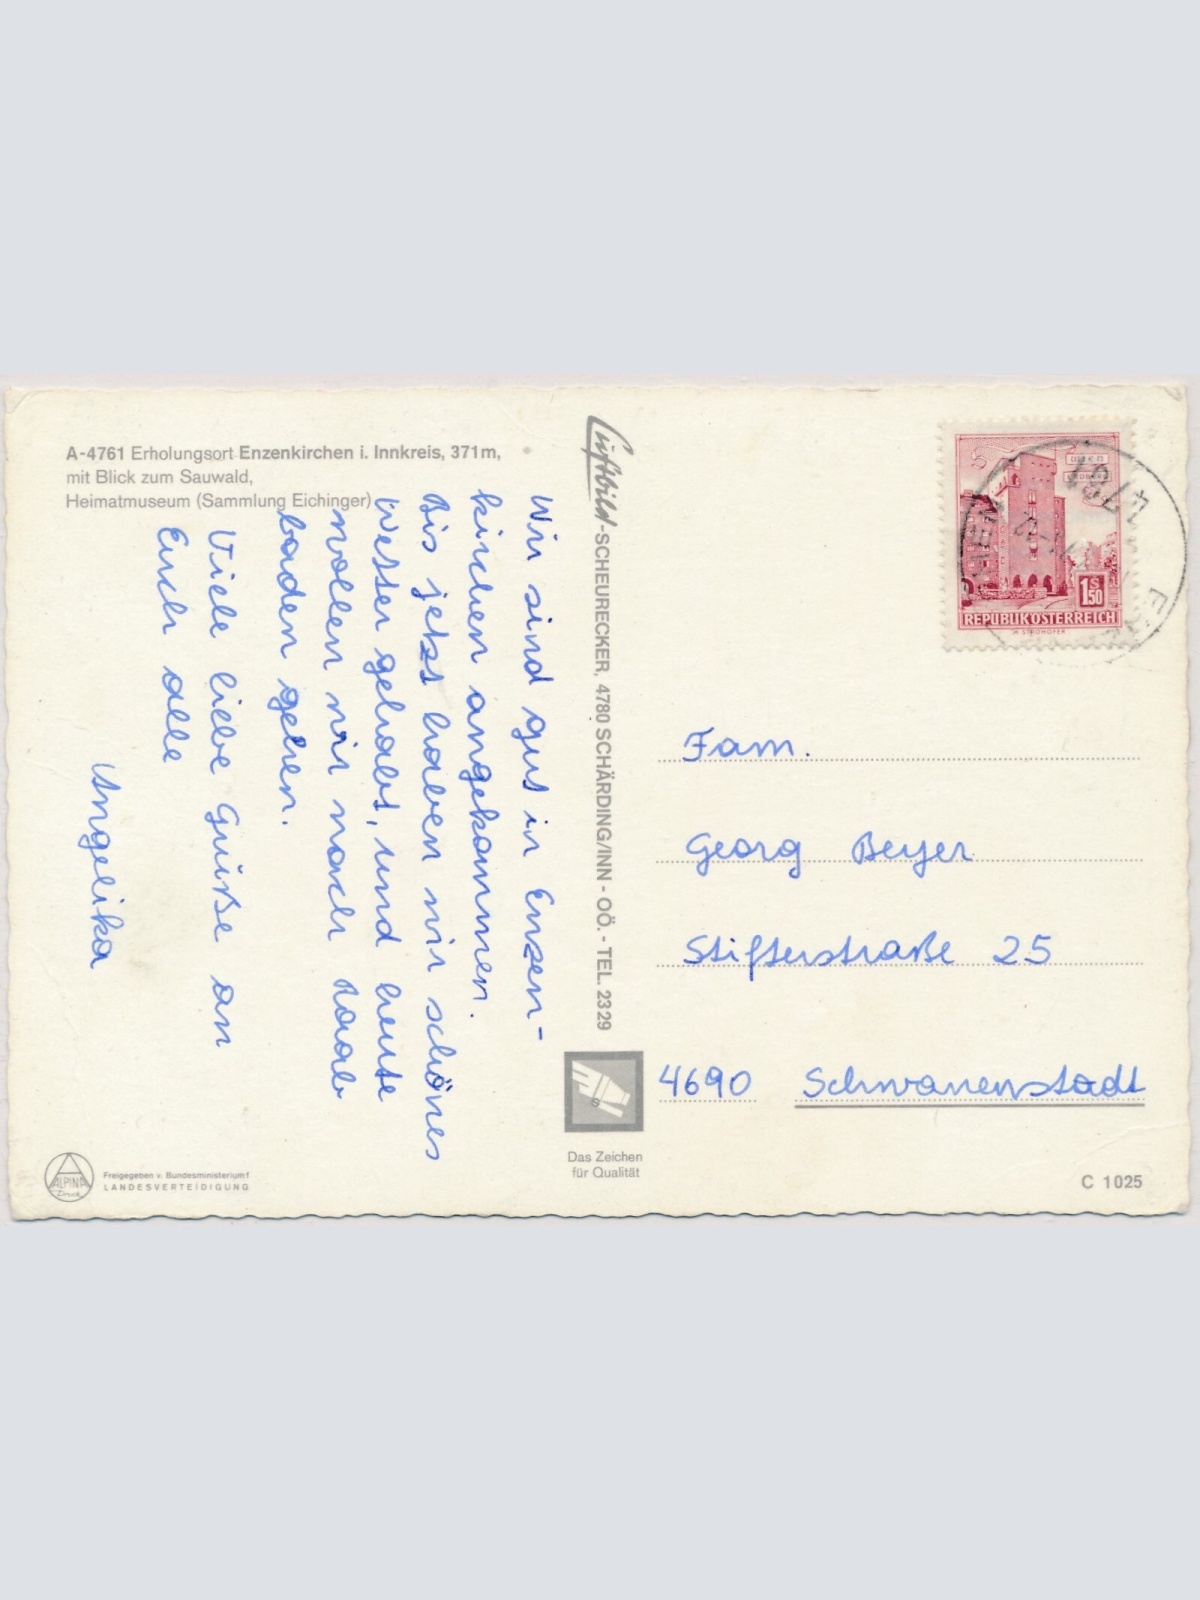 A-4761 Erholungsort Enzenkirchen i. Innkreis, 371m,
mit Blick zum Sauwald,
Heimatmuseum (Sammlung Eichinger)
Wir sind gut in Enzen-
kirchen angekommen.
Bis jetzt haben wir schönes
Wetter gehabt, und heute
wollen wir nach Raab
baden gehen.
Viele liebe Grüße an
Euch alle
Angelika
Luftbild-SCHEURECKER, 4780 SCHÄRDING/INN - OÖ. - TEL. 2329
Das Zeichen
für Qualität
WIEN
ERDBERG
1S50
REPUBLIK ÖSTERREICH
Fam.
Georg Beyer
Stifterstraße 25
4690 Schwanenstadt
ALPINA
Druck
Freigegeben v. Bundesministerium f
LANDESVERTEIDIGUNG
C 1025